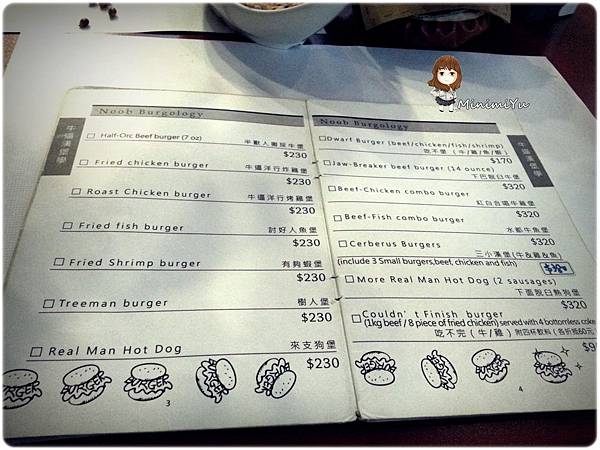 MinimiYu
Noob Burgology
牛逼漢堡學
Half-Orc Beef burger (7 oz)
半獸人獨尻牛堡
$230
Fried chicken burger
牛逼洋行炸雞堡
$230
Roast Chicken burger
牛逼洋行烤雞堡
$230
Fried fish burger
討好人魚堡
$230
Fried Shrimp burger
有夠蝦堡
$230
Treeman burger
樹人堡
$230
Real Man Hot Dog
來支狗堡
$230
3
Noob Burgology
牛逼漢堡學
Dwarf Burger (beef/chicken/fish/shrimp)
吃不堡 (牛/雞/魚/蝦)
$170
Jaw-Breaker beef burger (14 ounce)
下巴脫臼牛堡
$320
Beef-Chicken combo burger
紅白合唱牛雞堡
$320
Beef-Fish combo burger
水都牛魚堡
$320
Cerberus Burgers
三小漢堡(牛&雞&魚)
(include 3 Small burgers,beef, chicken and fish)
More Real Man Hot Dog (2 sausages)
下面脫臼熱狗堡
$320
Couldn't Finish burger
(1kg beef / 8 piece of fried chicken) served with 4 bottomless coke
吃不完 (牛/雞) 附四杯飲料 (各折抵60元)
4